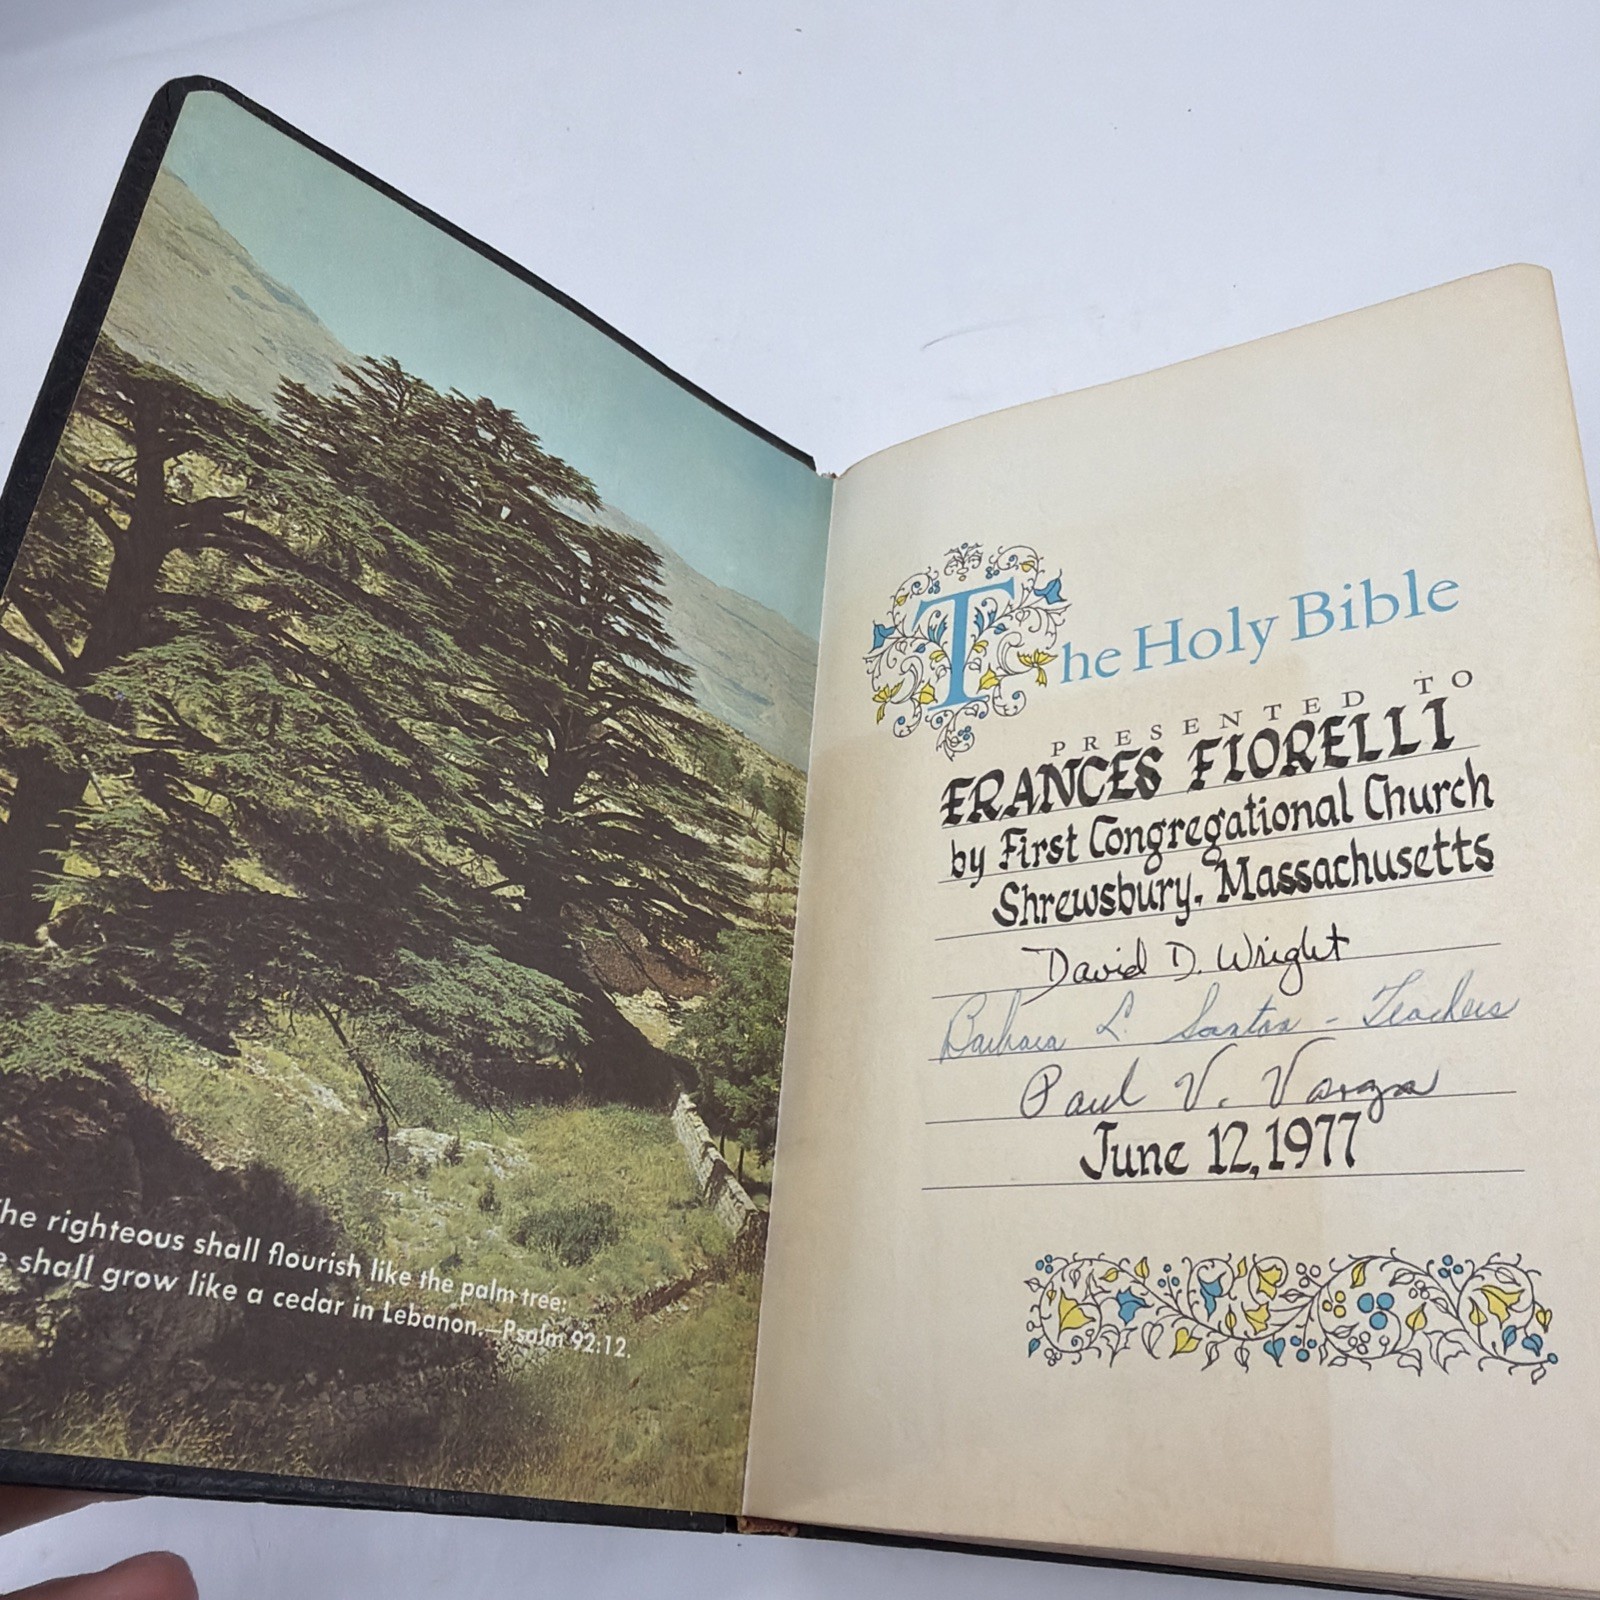 The righteous shall flourish like the palm tree:
he shall grow like a cedar in Lebanon.—Psalm 92:12.
The Holy Bible
PRESENTED TO
FRANCES FIORELLI
by First Congregational Church
Shrewsbury, Massachusetts
David D. Wright
Barbara L. - Teachers
Paul V. Varga
June 12, 1977